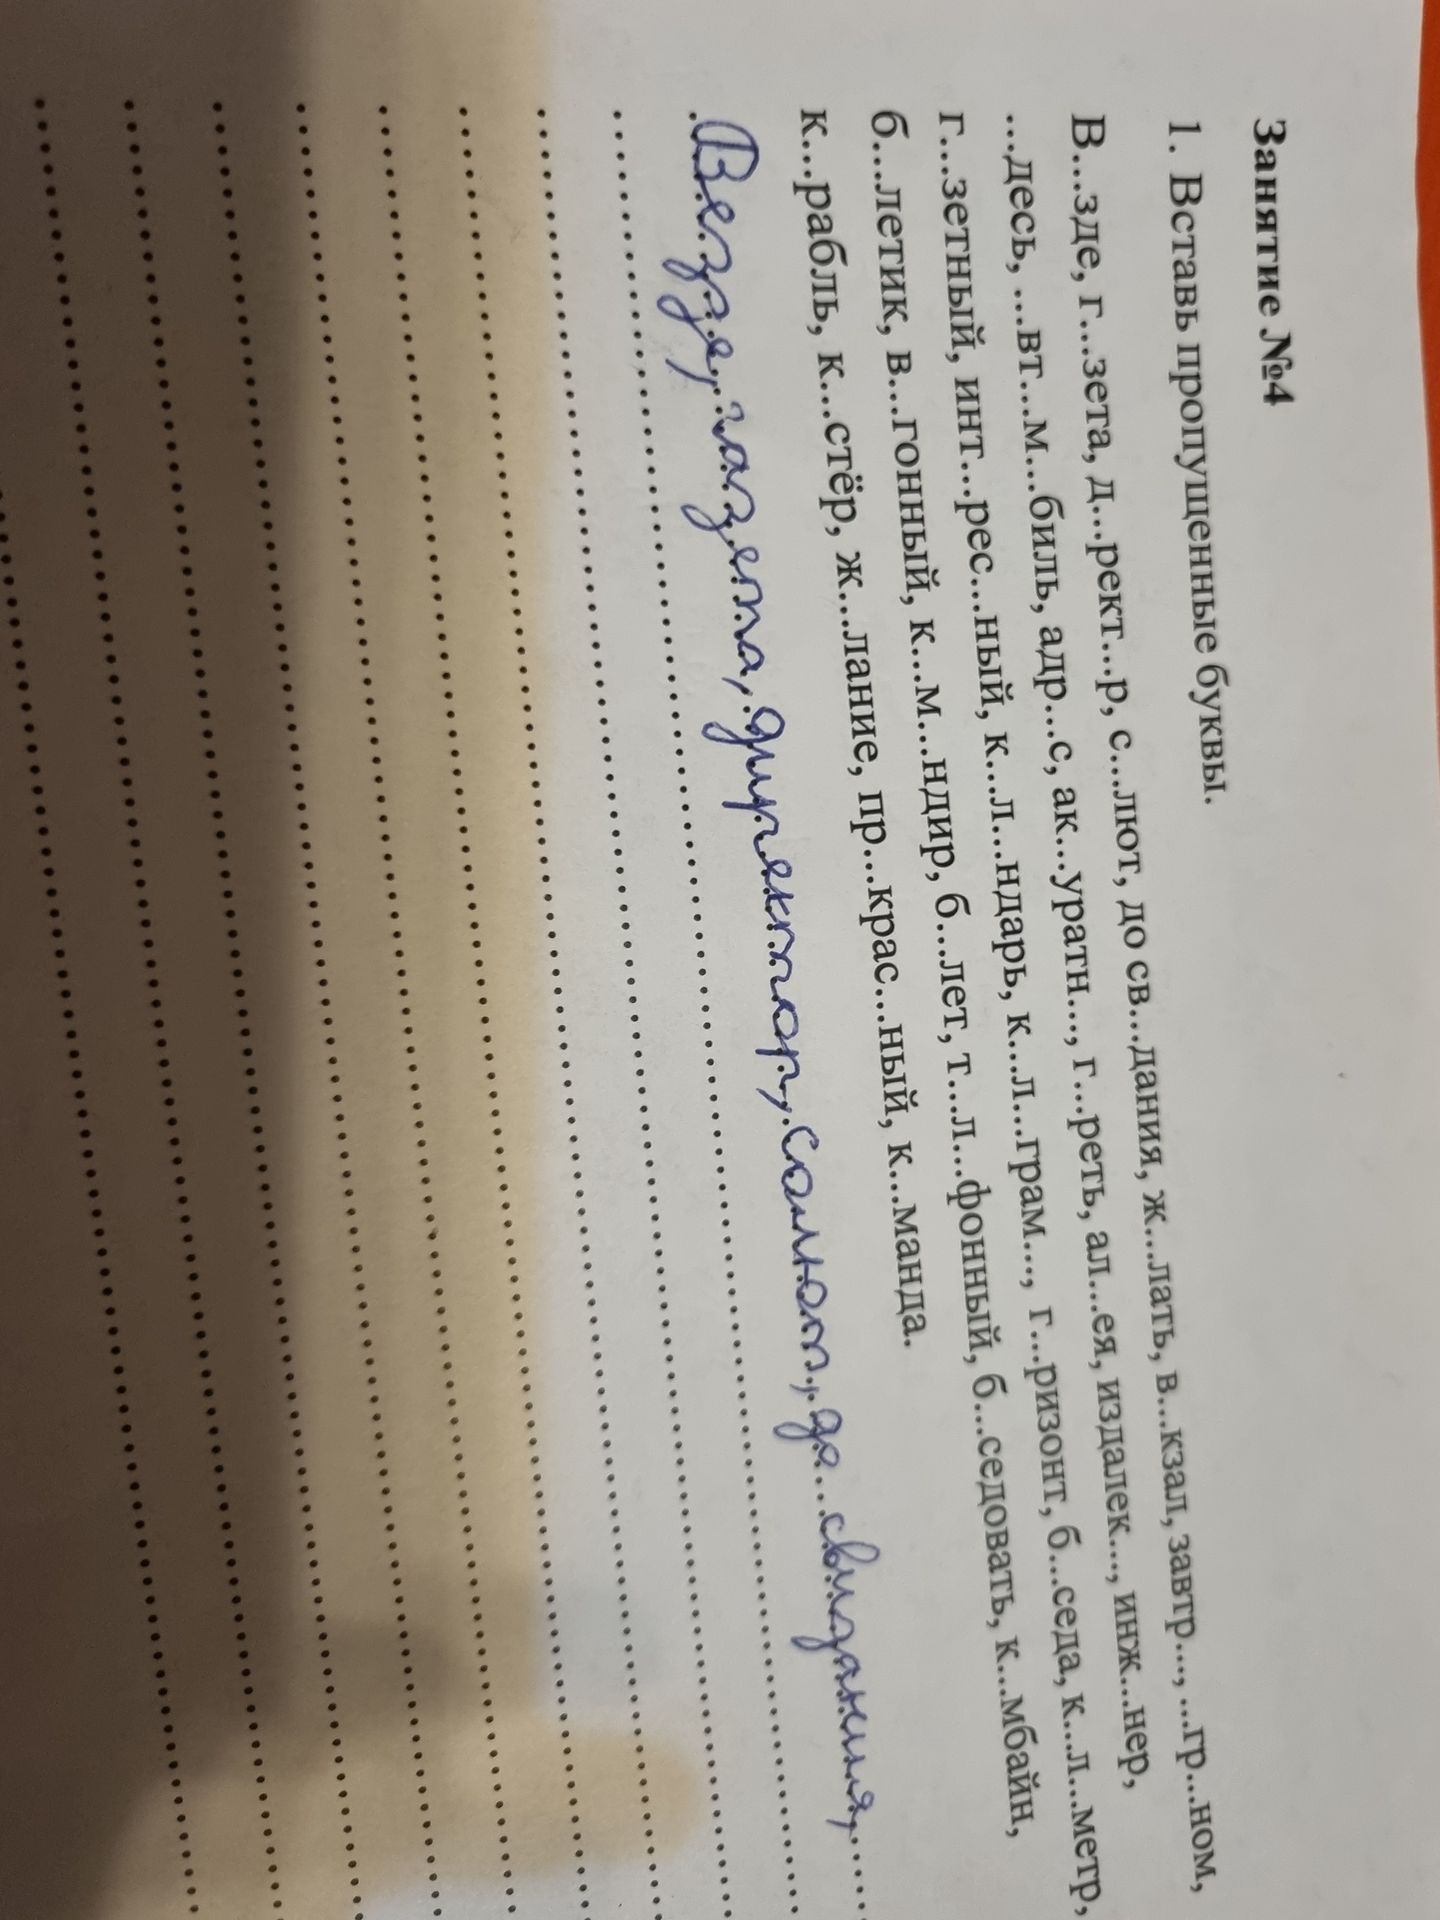 Занятие №4
1. Вставь пропущенные буквы.
В...зде, г...зета, д...рект...р, с...лют, до св...дания, ж...лать, в...кзал, завтр..., ...гр...ном,
...десь, ...вт...м...биль, адр...с, ак...уратн..., г...реть, ал...ея, издалек..., инж...нер,
г...зетный, инт...рес...ный, к...л...ндарь, к...л...грам..., г...ризонт, б...седа, к...л...метр,
б...летик, в...гонный, к...м...ндир, б...лет, т...л...фонный, б...седовать, к...мбайн,
к...рабль, к...стёр, ж...лание, пр...крас...ный, к...манда.
Везде, газета, директор, салют, до свидания,